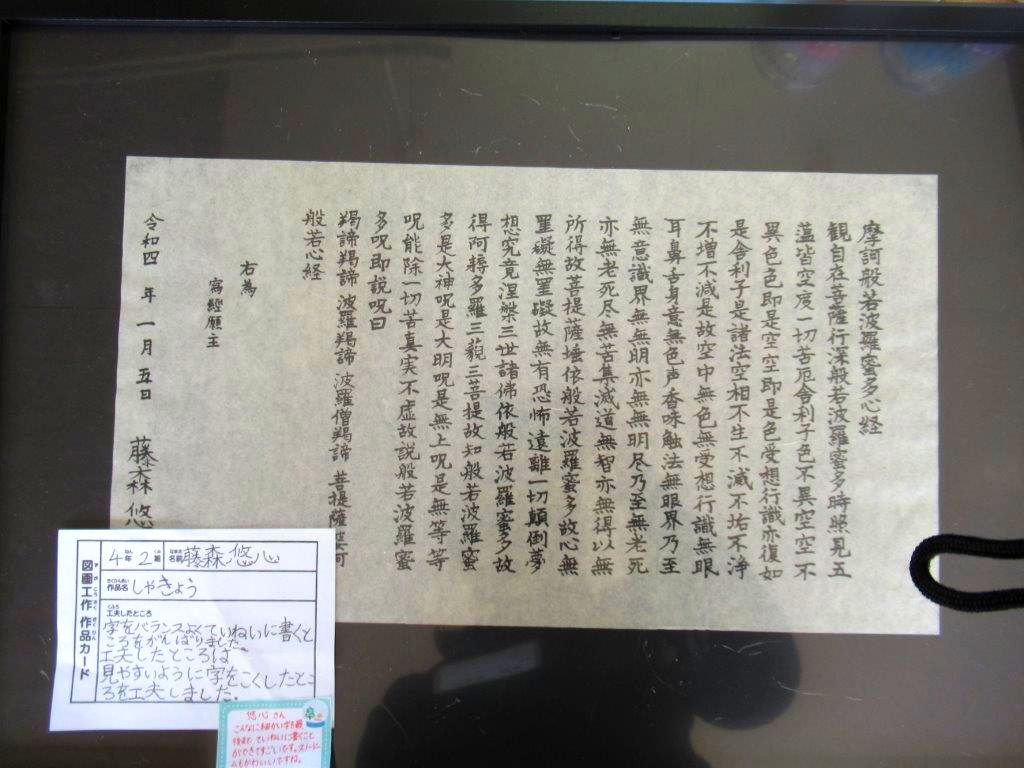 摩訶般若波羅蜜多心経
観自在菩薩行深般若波羅蜜多時照見五
蘊皆空度一切苦厄舎利子色不異空空不
異色色即是空空即是色受想行識亦復如
是舎利子是諸法空相不生不滅不垢不浄
不増不減是故空中無色無受想行識無眼
耳鼻舌身意無色声香味触法無眼界乃至
無意識界無無明亦無無明尽乃至無老死
亦無老死尽無苦集滅道無智亦無得以無
所得故菩提薩埵依般若波羅蜜多故心無
罣礙無罣礙故無有恐怖遠離一切顛倒夢
想究竟涅槃三世諸佛依般若波羅蜜多故
得阿耨多羅三藐三菩提故知般若波羅蜜
多是大神呪是大明呪是無上呪是無等等
呪能除一切苦真実不虚故説般若波羅蜜
多呪即説呪曰
羯諦羯諦波羅羯諦波羅僧羯諦菩提薩婆訶
般若心経
右為
寫經願主
令和四年一月五日 藤森悠
図画工作作品カード
4年2組 名前 藤森悠心
作品名 しゃきょう
工夫したところ
字をバランスよくていねいに書くと
ころをがんばりました。
工夫したところは、
見やすいように字をこくしたとこ
ろを工夫しました。
悠心さん
こんなに細かい字を最
後まで、ていねいに書くこと
ができてすごいです。
もかわいいですね。